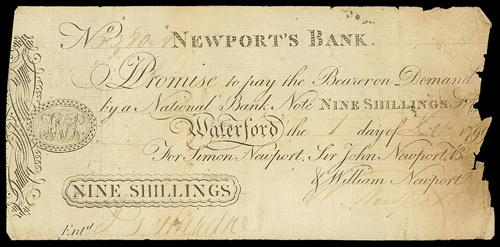 No
NEWPORT'S BANK.
I Promise to pay the Bearer on Demand
by a National Bank Note NINE SHILLINGS
Waterford the 1 day of 179
For Simon Newport, Sir John Newport, B
& William Newport
NINE SHILLINGS
Newport
Entd